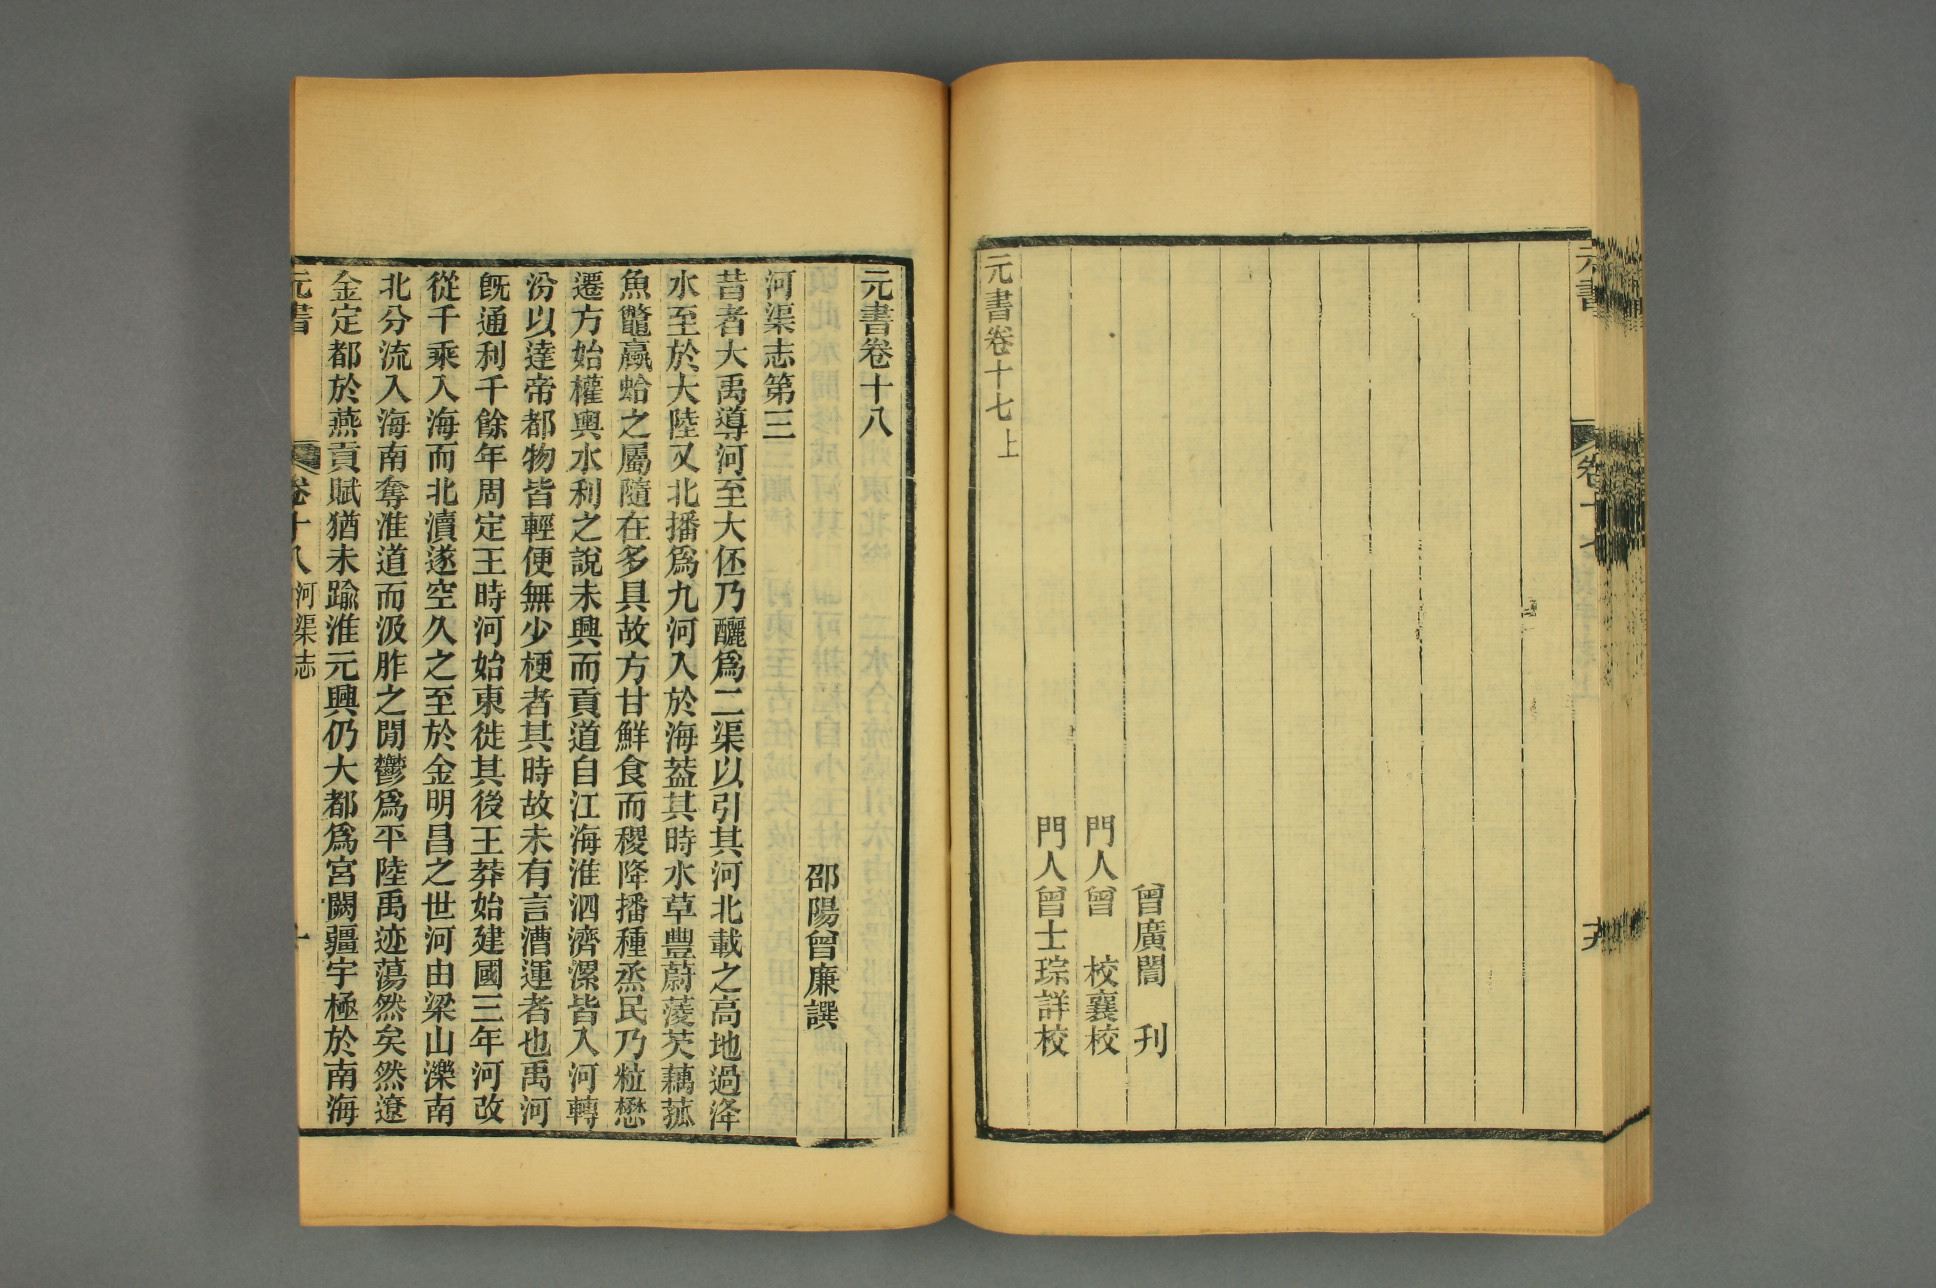 元書
卷十七
曾廣誾　刊
門人曾　校襄校
門人曾士琮詳校
元書卷十七上
元書卷十八
邵陽曾廉譔
河渠志第三
昔者大禹導河至大伾乃釃爲二渠以引其河北載之高地過洚
水至於大陸又北播爲九河入於海葢其時水草豐蔚蔆芡藕菰
魚鼈蠃蛤之屬隨在多具故方甘鮮食而稷降播種烝民乃粒懋
遷方始權輿水利之說未興而貢道自江海淮泗濟漯皆入河轉
汾以達帝都物皆輕便無少梗者其時故未有言漕運者也禹河
旣通利千餘年周定王時河始東徙其後王莽始建國三年河改
從千乘入海而北瀆遂空久之至於金明昌之世河由梁山濼南
北分流入海南奪淮道而汲胙之閒鬱爲平陸禹迹蕩然矣然遼
金定都於燕貢賦猶未踰淮元興仍大都爲宮闕疆宇極於南海
元書
卷十八
河渠志
一